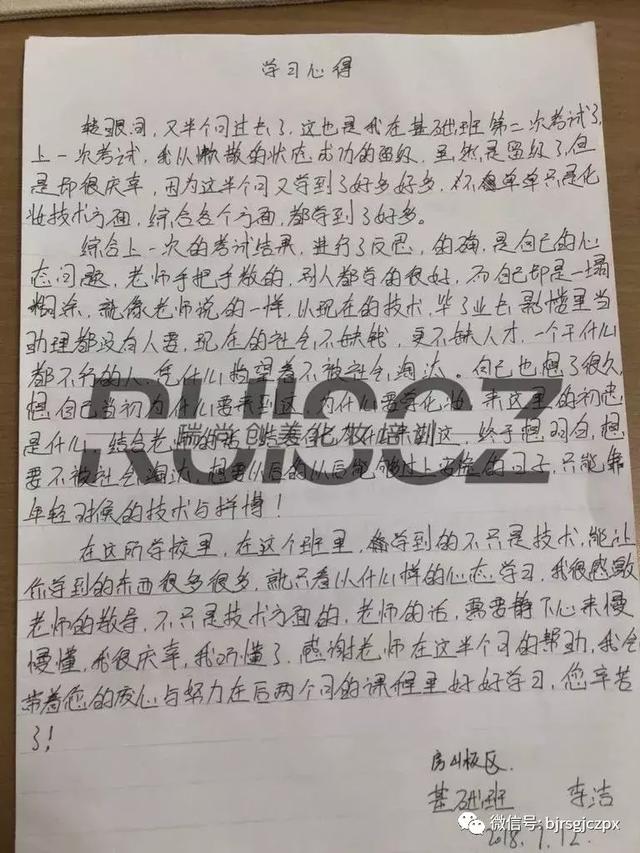 学习心得
转眼间，又半个月过去了，这也是我在基础班第二次考试了，
上一次考试，我从懒散的状态成功的留级，虽然是留级了，但
是却很庆幸，因为这半个月又学到了好多好多，不但单单只是化
妆技术方面，综合各个方面，都学到了好多。
综合上一次的考试结果，进行了反思，的确，是自己的心
态问题，老师手把手教的，别人都学的很好，而自己却是一塌
糊涂，就像老师说的一样，以现在的技术，毕了业去影楼里当
助理都没有人要，现在的社会不缺钱，更不缺人才，一个干什么
都不行的人，凭什么指望着不被社会淘汰。自己也想了很久，
想自己当初为什么要来到这，为什么要学化妆，来这里的初衷
是什么，结合老师的 这，终于想明白，想
要不被社会淘汰，想要从后的从后能够过上安稳的日子，只能靠
年轻时候的技术与拼博！
在这所学校里，在这个班里，学到的不只是技术，能让
你学到的东西很多很多，就只看以什么样的心态学习，我很感激
老师的教导，不只是技术方面的，老师的话，需要静下心来慢
慢懂，我很庆幸，我听懂了，感谢老师在这半个月的帮助，我会
带着您的爱心与努力在后两个月的课程里好好学习，您辛苦
了！
房山校区
基础班 李洁
2018.1.12
RUISCZ
瑞尚创美化妆培训
微信号: bjrsgjczpx